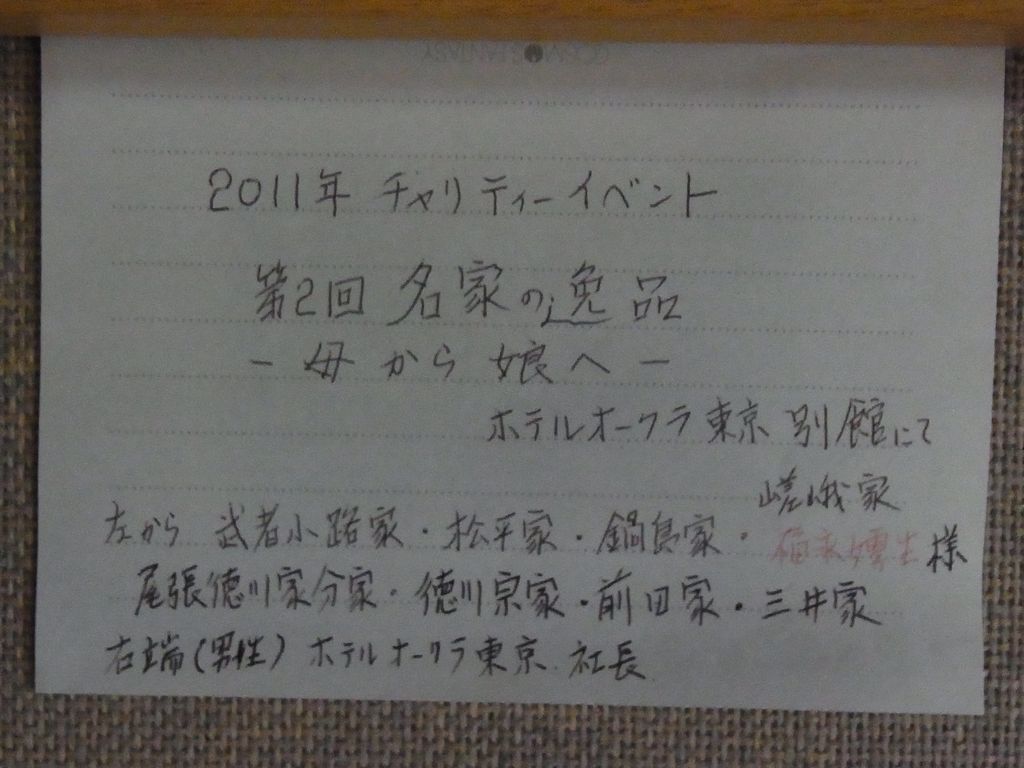 2011年 チャリティーイベント
第2回 名家の逸品
- 母から娘へ -
ホテルオークラ東京 別館にて
嵯峨家
左から 武者小路家・松平家・鍋島家・福永嬬生様
尾張徳川家分家・徳川宗家・前田家・三井家
右端(男性) ホテルオークラ東京 社長